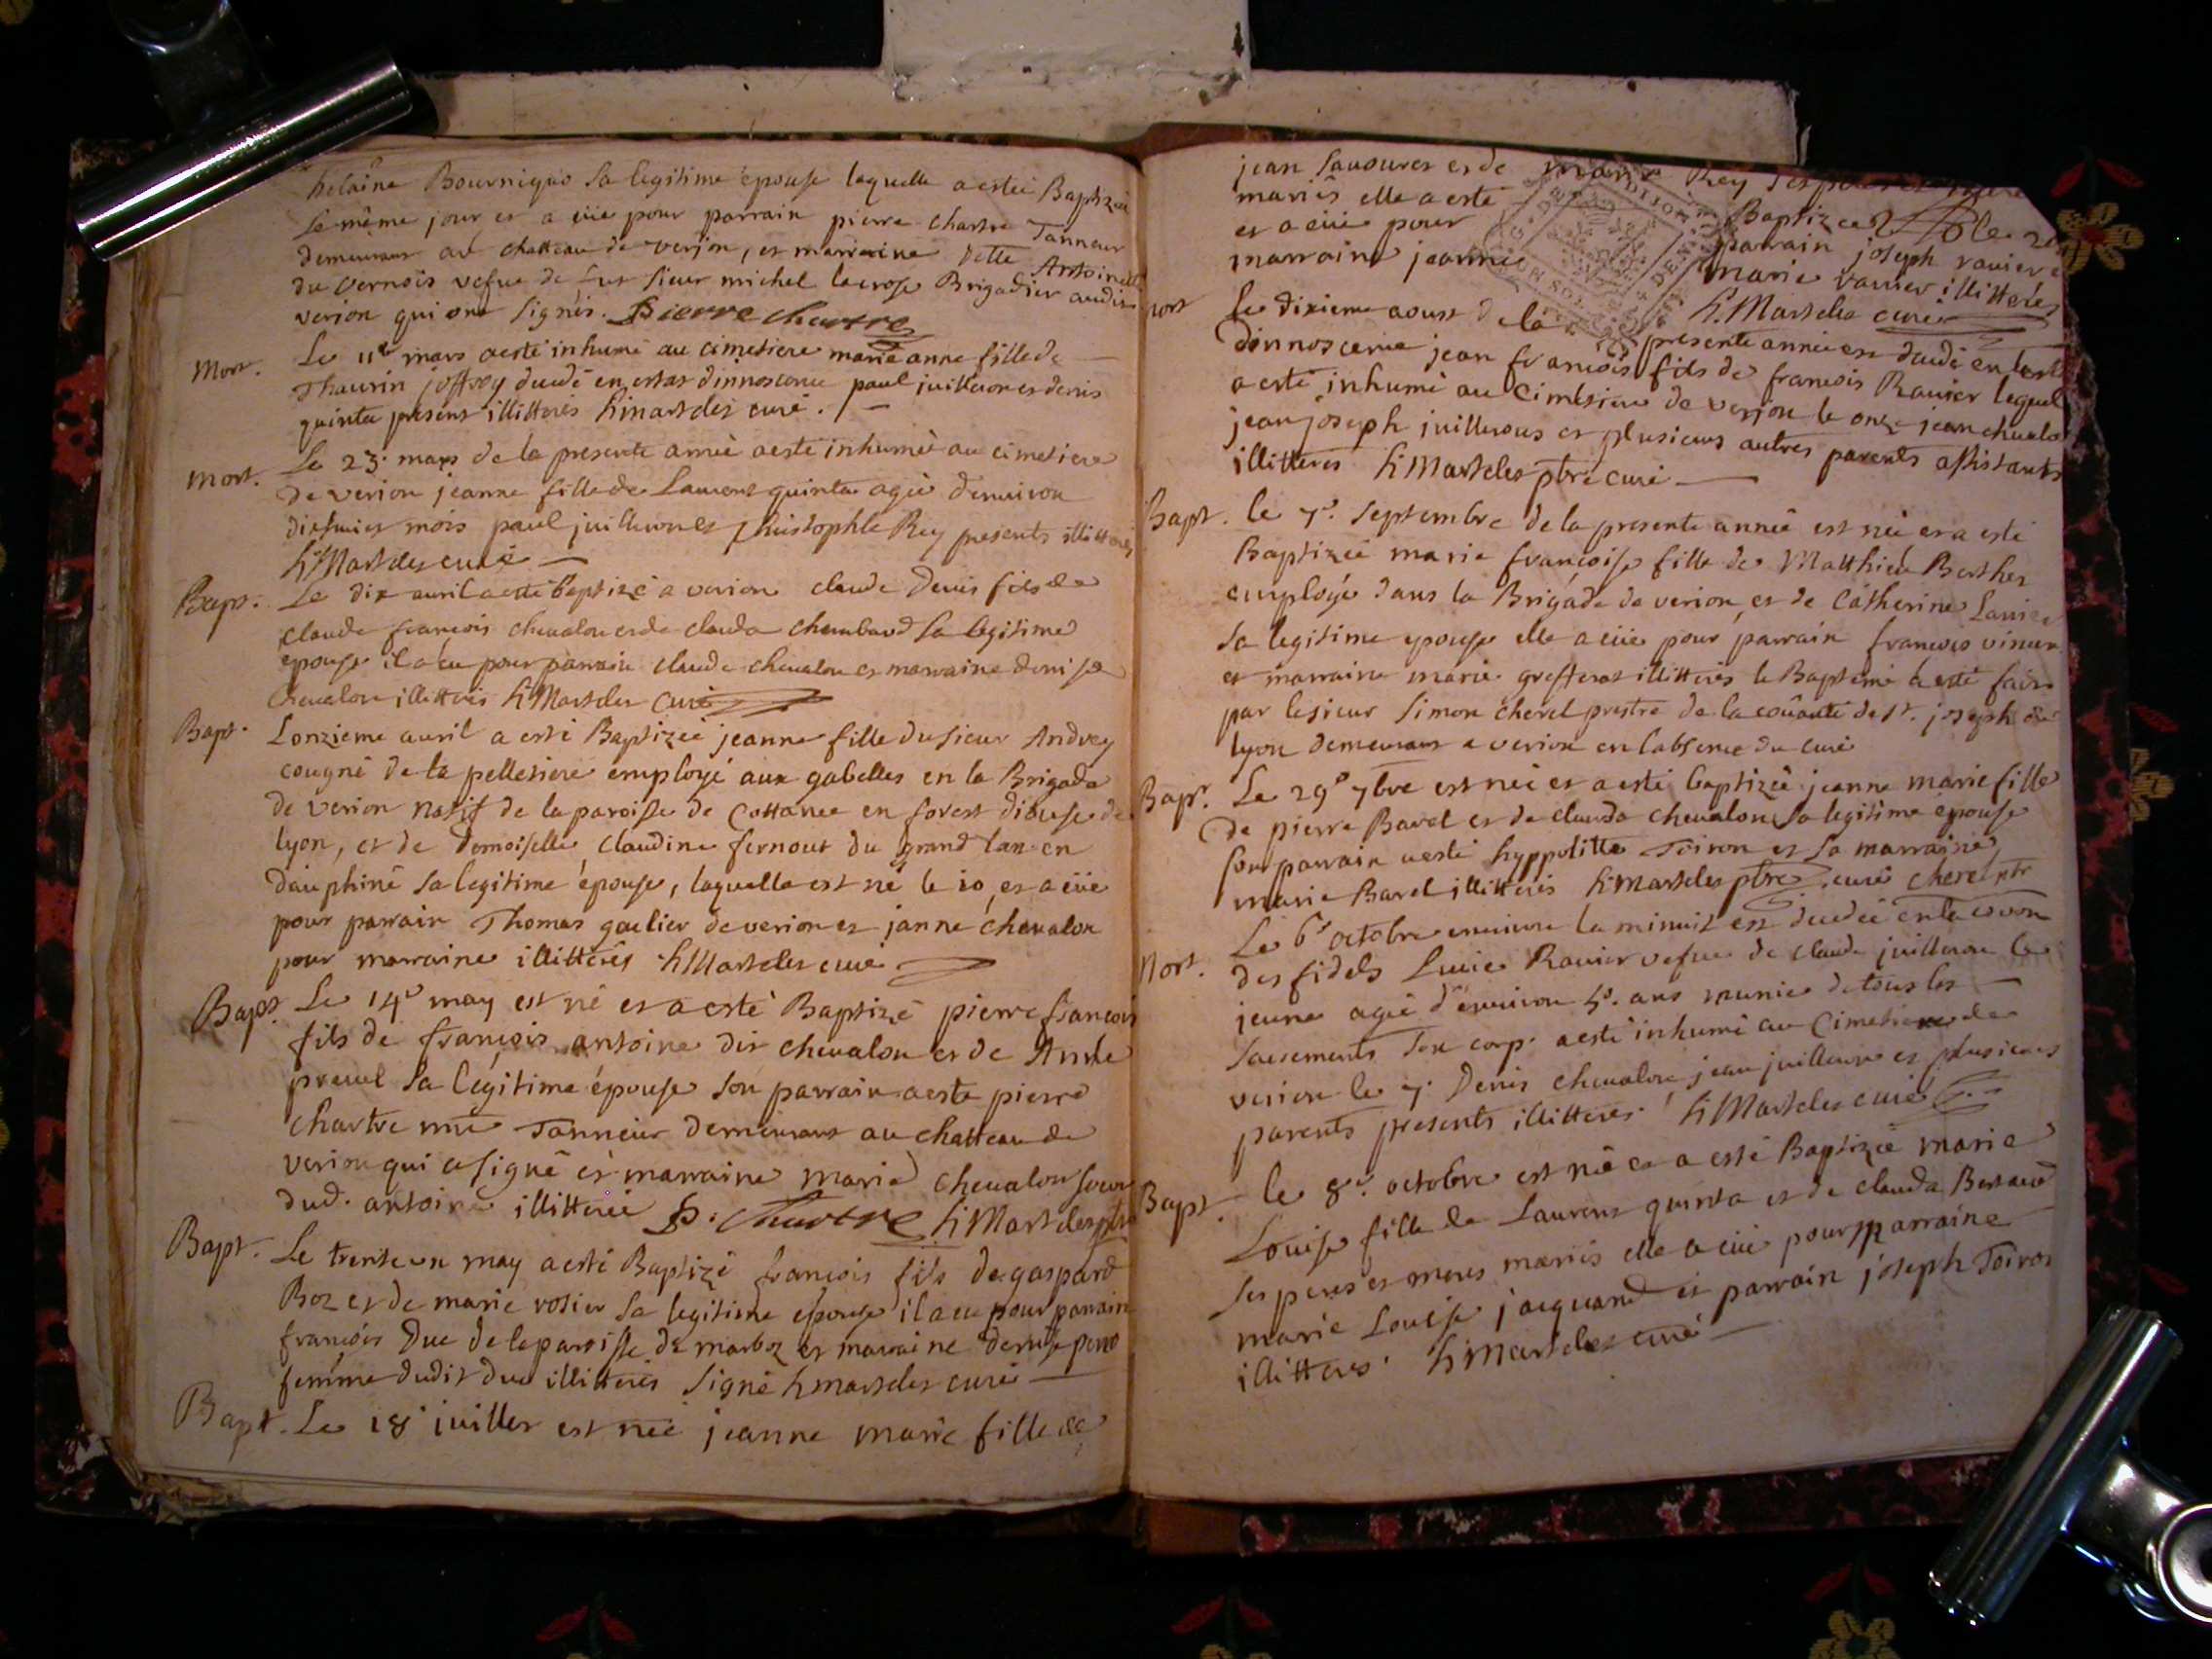 helaine Bourniquo sa legitime épouse laquelle a estée Baptizée
le même jour et a eüe pour parrain pierre chartre Tanneur
demeurant au chatteau de verjon, et marraine Dette Antoinette
du vernois vefue de Sieur michel lacrose Brigadier audit
verion qui ont signés. Pierre chartre
Mort. Le 11e mars a esté inhumé au cimetiere marie anne fille de
Thaurin joffrey decedé en estat dinnoscence paul juilleron et denis
quinta present illitterés h martelet curé.
Mort. Le 23. mars de la presente anneé a esté inhumeé au cimetiere
de verion jeanne fille de Laurent quinta ageé denuiron
dixhuict mois paul juilleron et christophle Rey presents illitterés
h Martelet curé
Bapt. Le dix auril a esté baptizé a verion claude Denis fils de
claude francois cheualon et de clauda chambard sa legitime
epouse il a eu pour parrain claude cheualon et marraine denise
cheualon illitterés h Martelet curé
Bapt. Lonzieme auril a esté Baptizeé jeanne fille du sieur Andrey
cougné de la pelletiere employé aux gabelles en la Brigade
de verion natif de la paroisse de Cottance en forest diocese de
lyon, et de Demoiselle claudine fernout du grand lan en
dauphiné sa legitime épouse, laquelle est né le 10, et a eüe
pour parrain Thomas gaulier de verion et janne cheualon
pour marraine illitterés h Martelet curé
Bapt. Le 14e may est né et a esté Baptizé pierre francois
fils de françois antoine dit cheualon et de Anne
preuel sa légitime épouse son parrain a esté pierre
chartre me Tanneur demeurant au chatteau de
verion qui a signé et marraine marie cheualon soeur
dud. antoine illitterée P. Chartre h Martelet ptre
Bapt. Le trente un may a esté Baptizé francois fils de gaspard
Boz et de marie rosier sa legitime epouse il a eu pour parrain
françois Duc de la paroisse de marboz et marraine denise
femme dudit duc illitterés signé h martelet curé
Bapt. Le 18 juillet est neé jeanne marie fille de
jean sauoures et de marie Rey ses
mariés elle a esté Baptizeé le
et a eüe pour parrain joseph rauier
marraine jeanne marie rauier illitterés
h. Martelet curé
mort le dixieme aoust de la presente anneé est decedé en lestat
dinnoscence jean francois fils de francois Rauier lequel
a esté inhumé au Cimetiere de verjon le onze jean cheualon
jean joseph juillerons et plusieurs autres parents assistants
illitterés h Martelet ptre curé
Bapt. le 7e. septembre de la presente anneé est neé et a esté
Baptizeé marie françoise fille de Matthieu Berther
employé dans la Brigade de verion et de Catherine
sa legitime epouse elle a eüe pour parrain françois
et marraine marie illitterés le Bapteme a esté fait
par le sieur Simon cherel prestre de la st. joseph de
lyon demeurant a verion en labsence du curé
Bapt. Le 29e 7bre est neé et a esté baptizeé jeanne marie fille
de pierre Bavel et de clauda cheualon sa legitime épouse
son parrain a esté hyppolitte Toiron et sa marraine
marie Bavel illitterés h martelet ptre curé cherel ptr
Mort. Le 6e octobre enuiron la minuit est decedeé en
des fidels Lucie Rauier vefue de claude juilleron le
jeune ageé d'enuiron ans munie de tous les
sacrements son corp. a esté inhumé au Cimetiere de
verion le 7. Denis cheualon, jean juilleron et plusieurs
parents presents illitterés. h Martelet curé
Bapt. le 8e. octobre est neé et a esté Baptizeé marie
Louise fille de Laurent quinta et de clauda Bertaud
ses peres et meres mariés elle a eüe pour marraine
marie Louise jacquand et parrain joseph Toiron
illitterés. h Martelet curé